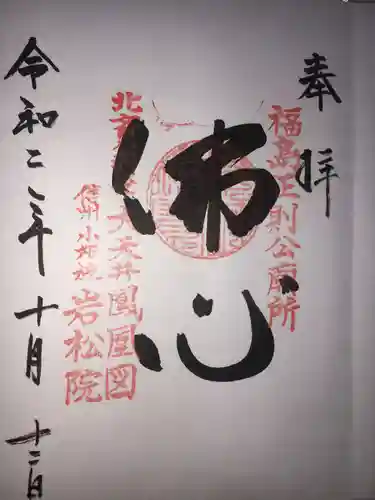 奉拝
福島正則公廟所
佛心
大天井鳳凰図
信州小布施
岩松院
令和二年十月十二日